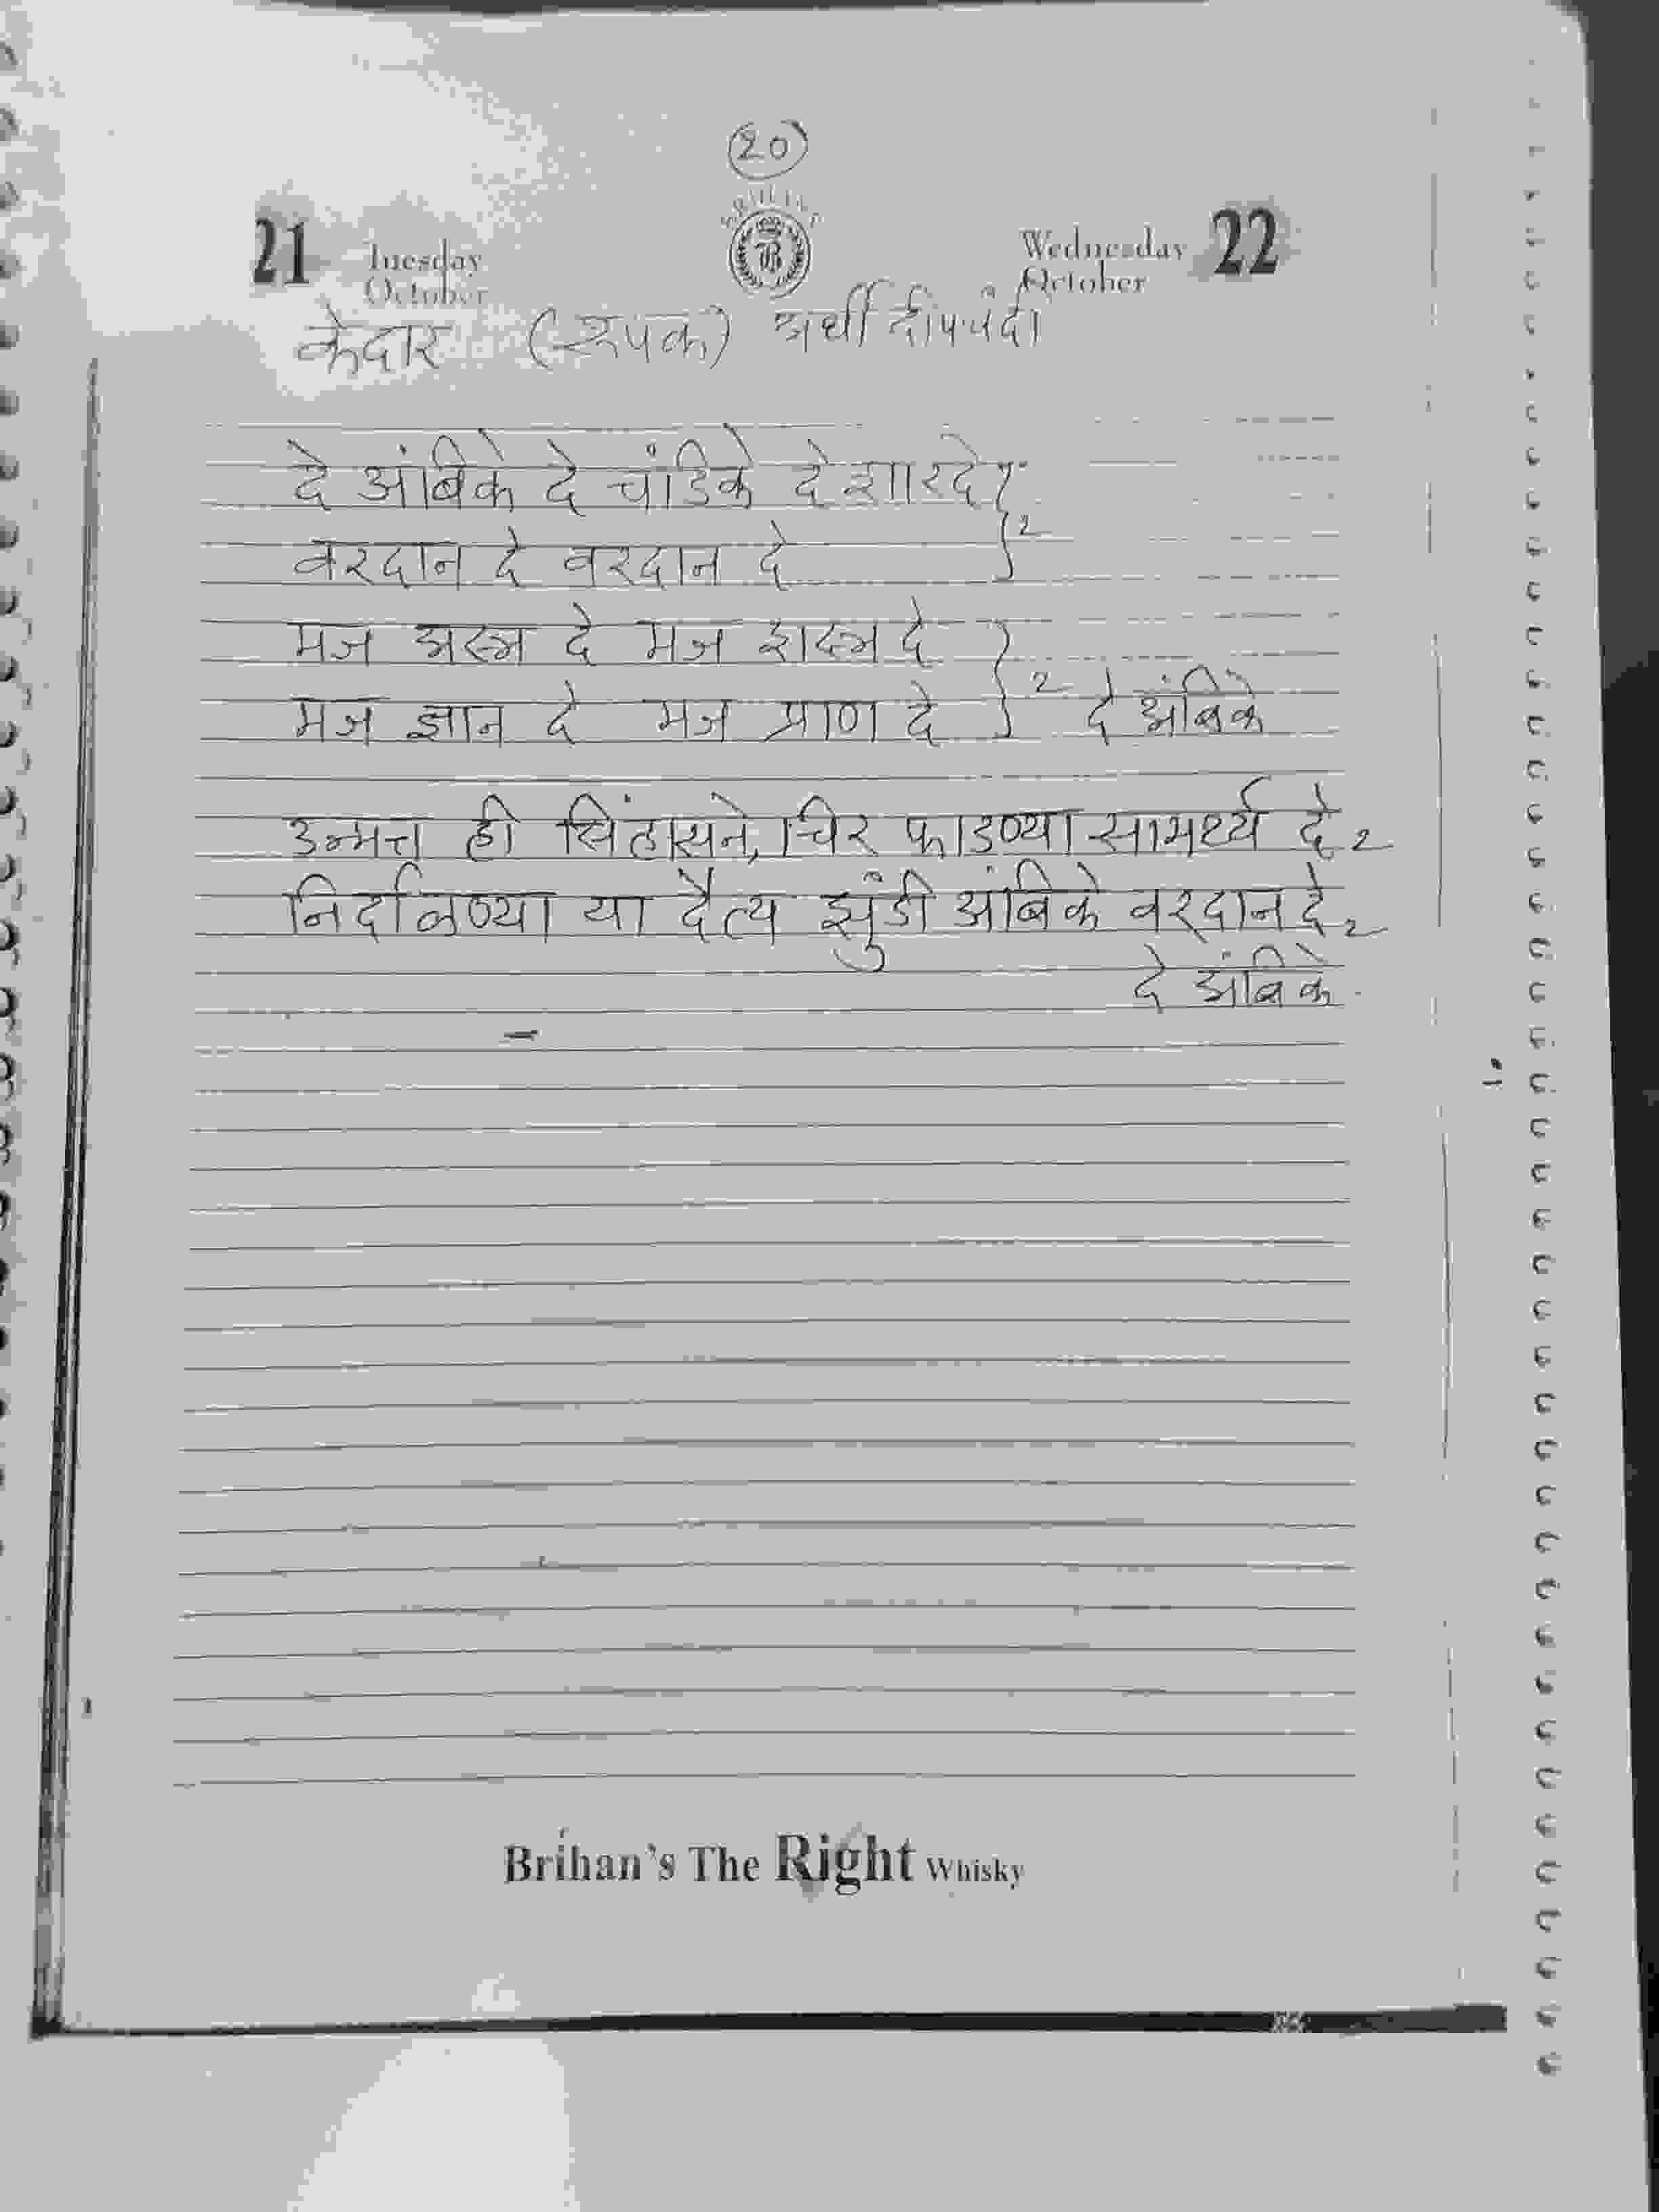 20
BRIHANS
21 Tuesday October Wednesday October 22
केदार (रूपक) अर्धी दीपचंदी
दे अंबिके दे चंडिके दे शारदे
वरदान दे वरदान दे } 2
मज अस्त्र दे मज शस्त्र दे
मज ज्ञान दे मज प्राण दे } 2 दे अंबिके
उन्मत्त ही सिंहासने, चिर फाडण्या सामर्थ्य दे 2
निर्दाळण्या या दैत्य झुंडी अंबिके वरदान दे 2
दे अंबिके
Brihan's The Right Whisky